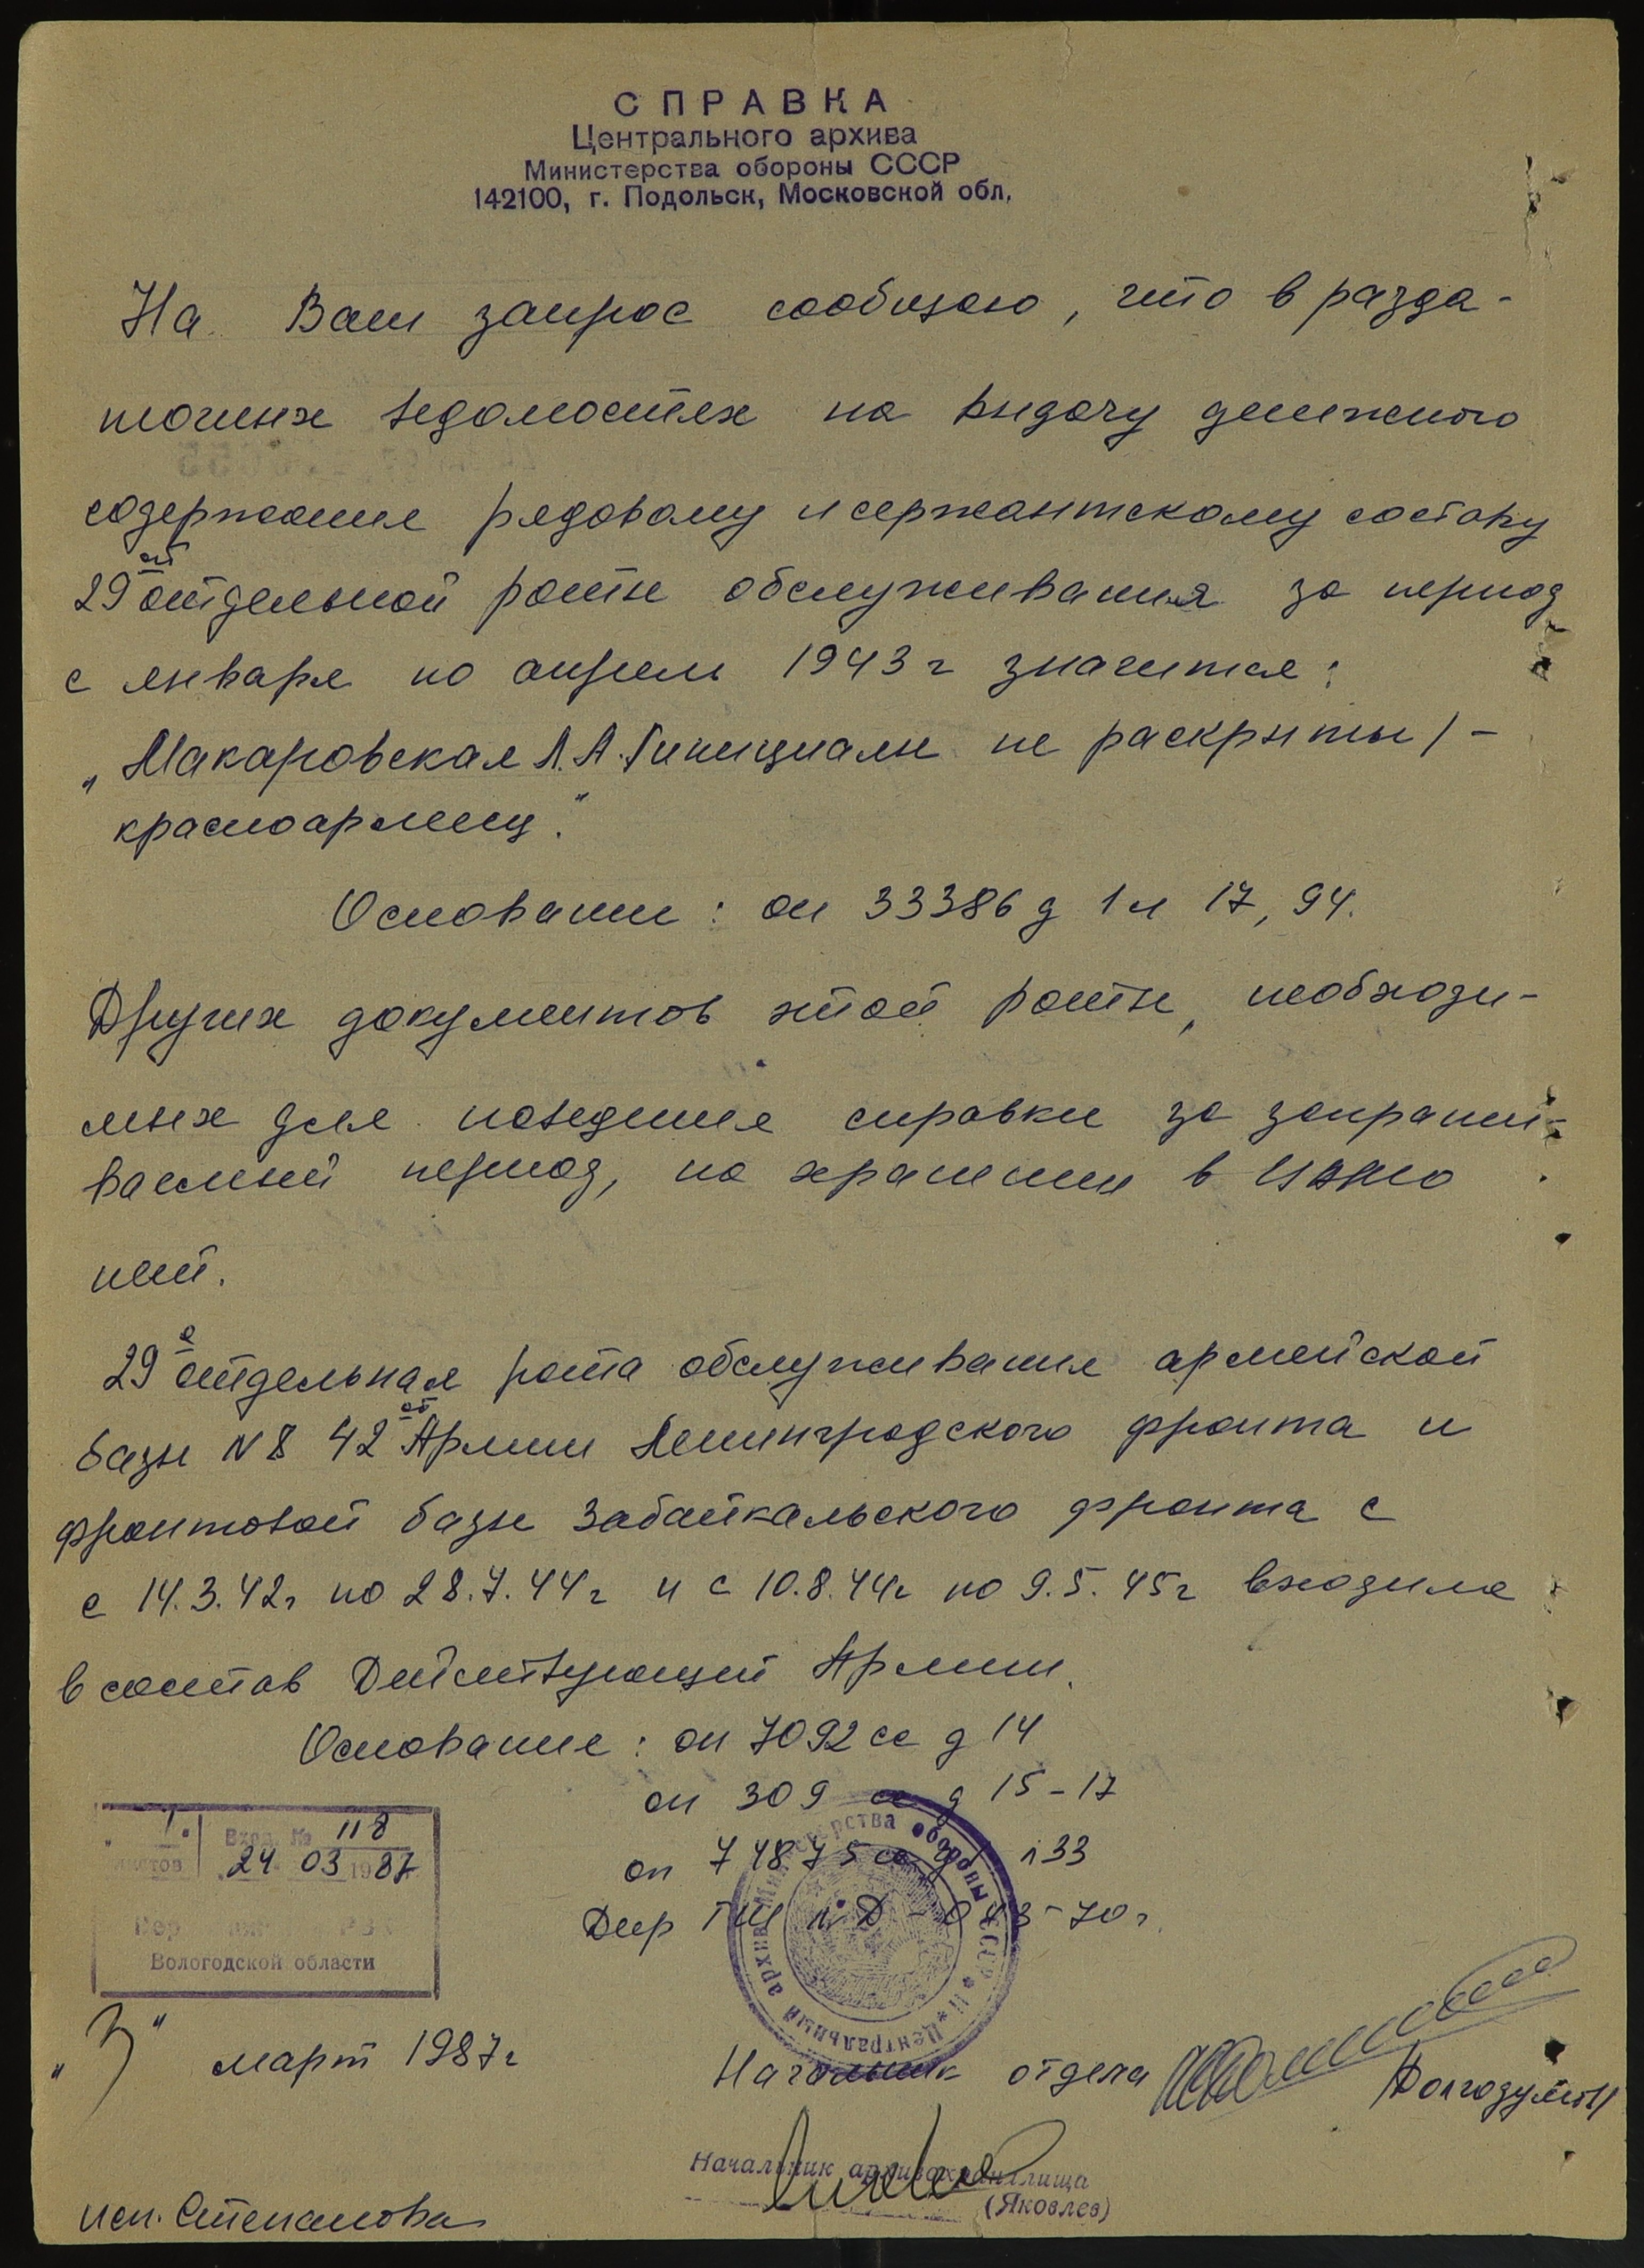 СПРАВКА
Центрального архива
Министерства обороны СССР
142100, г. Подольск, Московской обл.
На Ваш запрос сообщаю, что в разда-
точных ведомостях на выдачу денежного
содержания рядовому и сержантскому составу
29 ой отдельной роты обслуживания за период
с января по апрель 1943 г значится:
„Макаровская Л.А. /инициалы не раскрыты/ -
красноармеец."
Основание: оп 33386 д 1 л 17, 94.
Других документов этой роты, необходи-
мых для наведения справки за запраши-
ваемый период, на хранении в ЦАМО
нет.
29 я отдельная рота обслуживания армейской
базы N 8 42 ой Армии Ленинградского фронта и
фронтовой базы Забайкальского фронта с
с 14.3.42г по 28.7.44г и с 10.8.44г по 9.5.45г входила
в состав Действующей Армии.
Основание: оп 7092 сс д 14
оп 309 сс д 15-17
оп 74875 сс л 33
Дир ГШ 70 г.
листов Вход. № 118
24 03 1987
РВК
Вологодской области
"3" март 1987г
Министерства обороны СССР * Центральный архив
Начальник отдела
Начальник архивохранилища
(Яковлев)
исп. Степанова